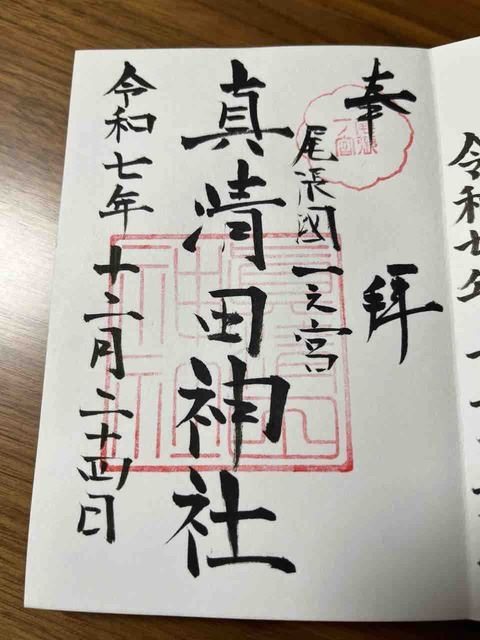 令和七年
奉拝
尾張國一之宮
真清田神社
令和七年十二月二十四日